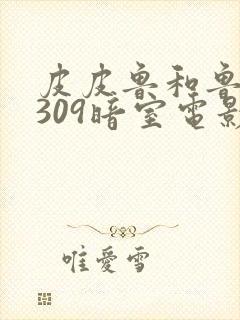 皮皮鲁和鲁
309暗室电影
唯爱雪